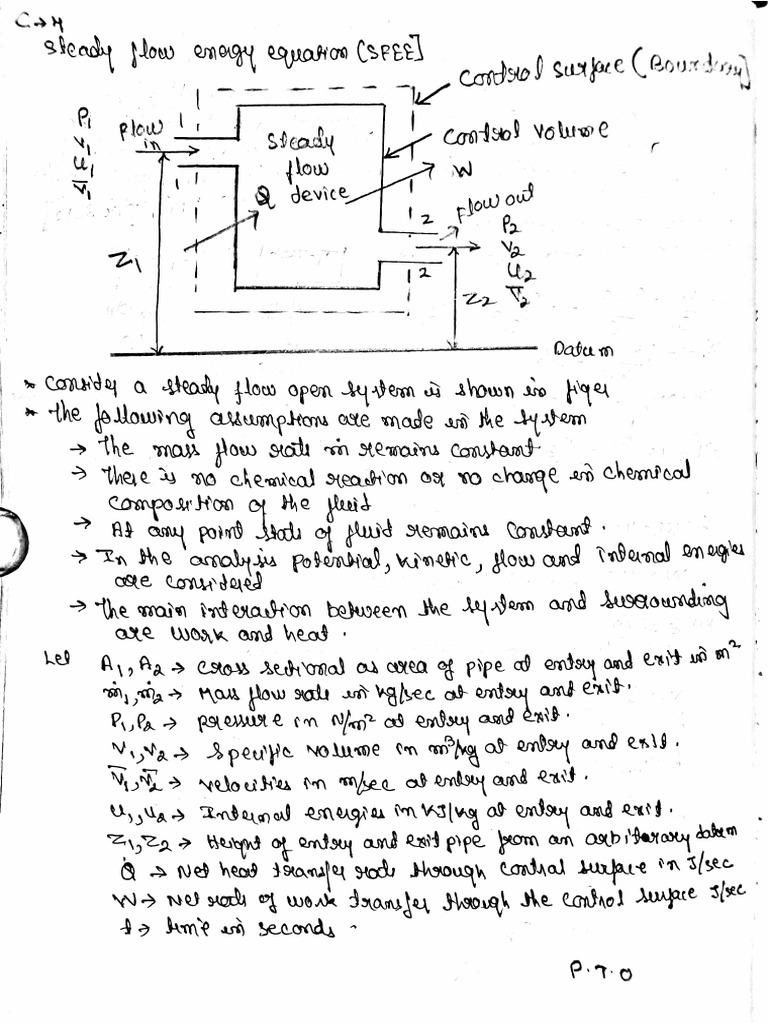 C→H
Steady flow energy equation (SFEE]
Control surface (Boundary]
P1
V1
U1
V̅1
Flow
in
1
1
Steady
flow
device
Q
Control volume
W
2
Flow out
P2
V2
U2
V̅2
2
Z1
Z2
Datum
* Consider a steady flow open system is shown in figer
* The following assumptions are made in the system
→ The mass flow rate ṁ remains constant
→ There is no chemical reaction or no change in chemical
composition of the fluid
→ At any point state of fluid remains constant.
→ In the analysis potential, kinetic, flow and internal energies
are considered
→ The main interaction between the system and surrounding
are work and heat.
Let A1, A2 → cross sectional as area of pipe at entry and exit in m²
ṁ1, ṁ2 → Mass flow rate in kg/sec at entry and exit.
P1, P2 → pressure in N/m² at entry and exit.
V1, V2 → Specific volume in m³/kg at entry and exit.
V̅1, V̅2 → velocities in m/sec at entry and exit.
U1, U2 → Internal energies in KJ/kg at entry and exit.
Z1, Z2 → Height of entry and exit pipe from an arbitarary datum
Q̇ → Net heat transfer rate through control surface in J/sec
W → Net rate of work transfer through the control surface J/sec
t → time in seconds.
P.T.O